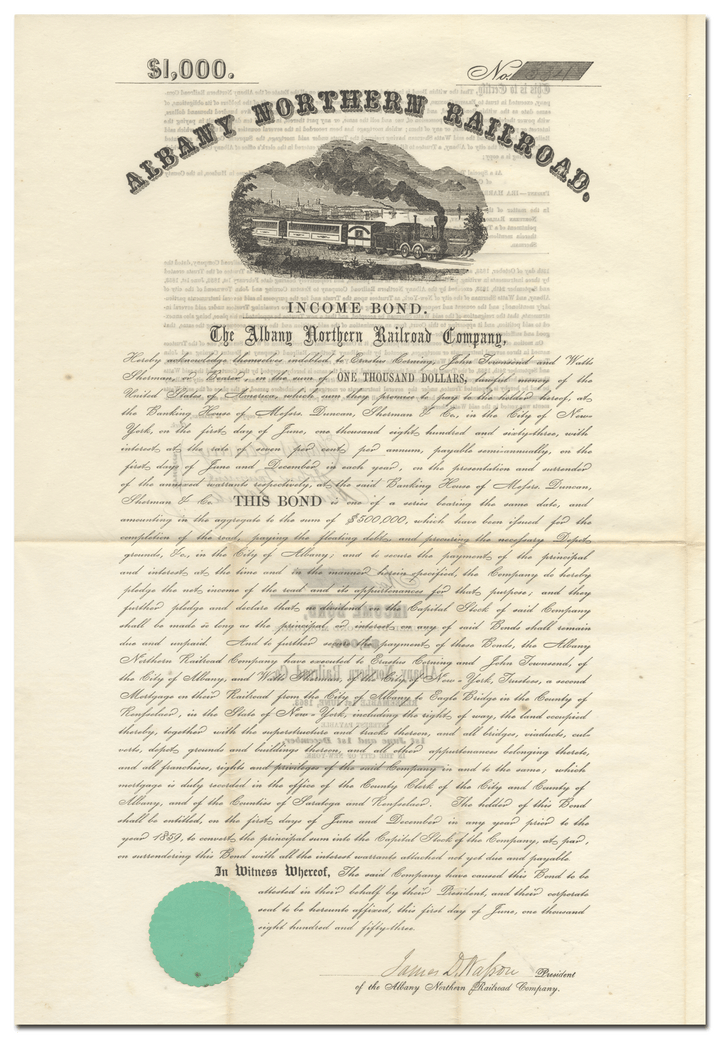 $1,000.
No.
ALBANY NORTHERN RAILROAD.
INCOME BOND.
The Albany Northern Railroad Company,
Hereby acknowledge themselves indebted to Erastus Corning, John Townsend and Watts
Sherman, or Bearer, in the sum of ONE THOUSAND DOLLARS, lawful money of the
United States of America, which sum they promise to pay to the holder hereof, at
the Banking House of Messrs. Duncan, Sherman & Co., in the City of New-
York, on the first day of June, one thousand eight hundred and sixty-three, with
interest at the rate of seven per cent per annum, payable semi-annually, on the
first days of June and December in each year, on the presentation and surrender
of the annexed warrants respectively, at the said Banking House of Messrs. Duncan,
Sherman & Co. THIS BOND is one of a series bearing the same date, and
amounting in the aggregate to the sum of $500,000, which have been issued for the
completion of the road, paying the floating debts, and procuring the necessary Depot
grounds, &c., in the City of Albany; and to secure the payment of the principal
and interest at the time and in the manner herein specified, the Company do hereby
pledge the net income of the road and its appurtenances for that purpose; and they
further pledge and declare that no dividend on the Capital Stock of said Company
shall be made so long as the principal or interest on any of said Bonds shall remain
due and unpaid. And to further secure the payment of these Bonds, the Albany
Northern Railroad Company have executed to Erastus Corning and John Townsend, of
the City of Albany, and Watts Sherman, of the City of New-York, Trustees, a second
Mortgage on their Railroad from the City of Albany to Eagle Bridge in the County of
Rensselaer, in the State of New-York, including the right of way, the land occupied
thereby, together with the superstructure and tracks thereon, and all bridges, viaducts, cul-
verts, depot grounds and buildings thereon, and all other appurtenances belonging thereto,
and all franchises, rights and privileges of the said Company in and to the same; which
mortgage is duly recorded in the office of the County Clerk of the City and County of
Albany, and of the Counties of Saratoga and Rensselaer. The holder of this Bond
shall be entitled, on the first days of June and December in any year prior to the
year 1859, to convert the principal sum into the Capital Stock of the Company, at par,
on surrendering this Bond with all the interest warrants attached not yet due and payable.
In Witness Whereof, The said Company have caused this Bond to be
attested in their behalf by their President, and their corporate
seal to be hereunto affixed, this first day of June, one thousand
eight hundred and fifty-three.
James D. Wasson President
of the Albany Northern Railroad Company.